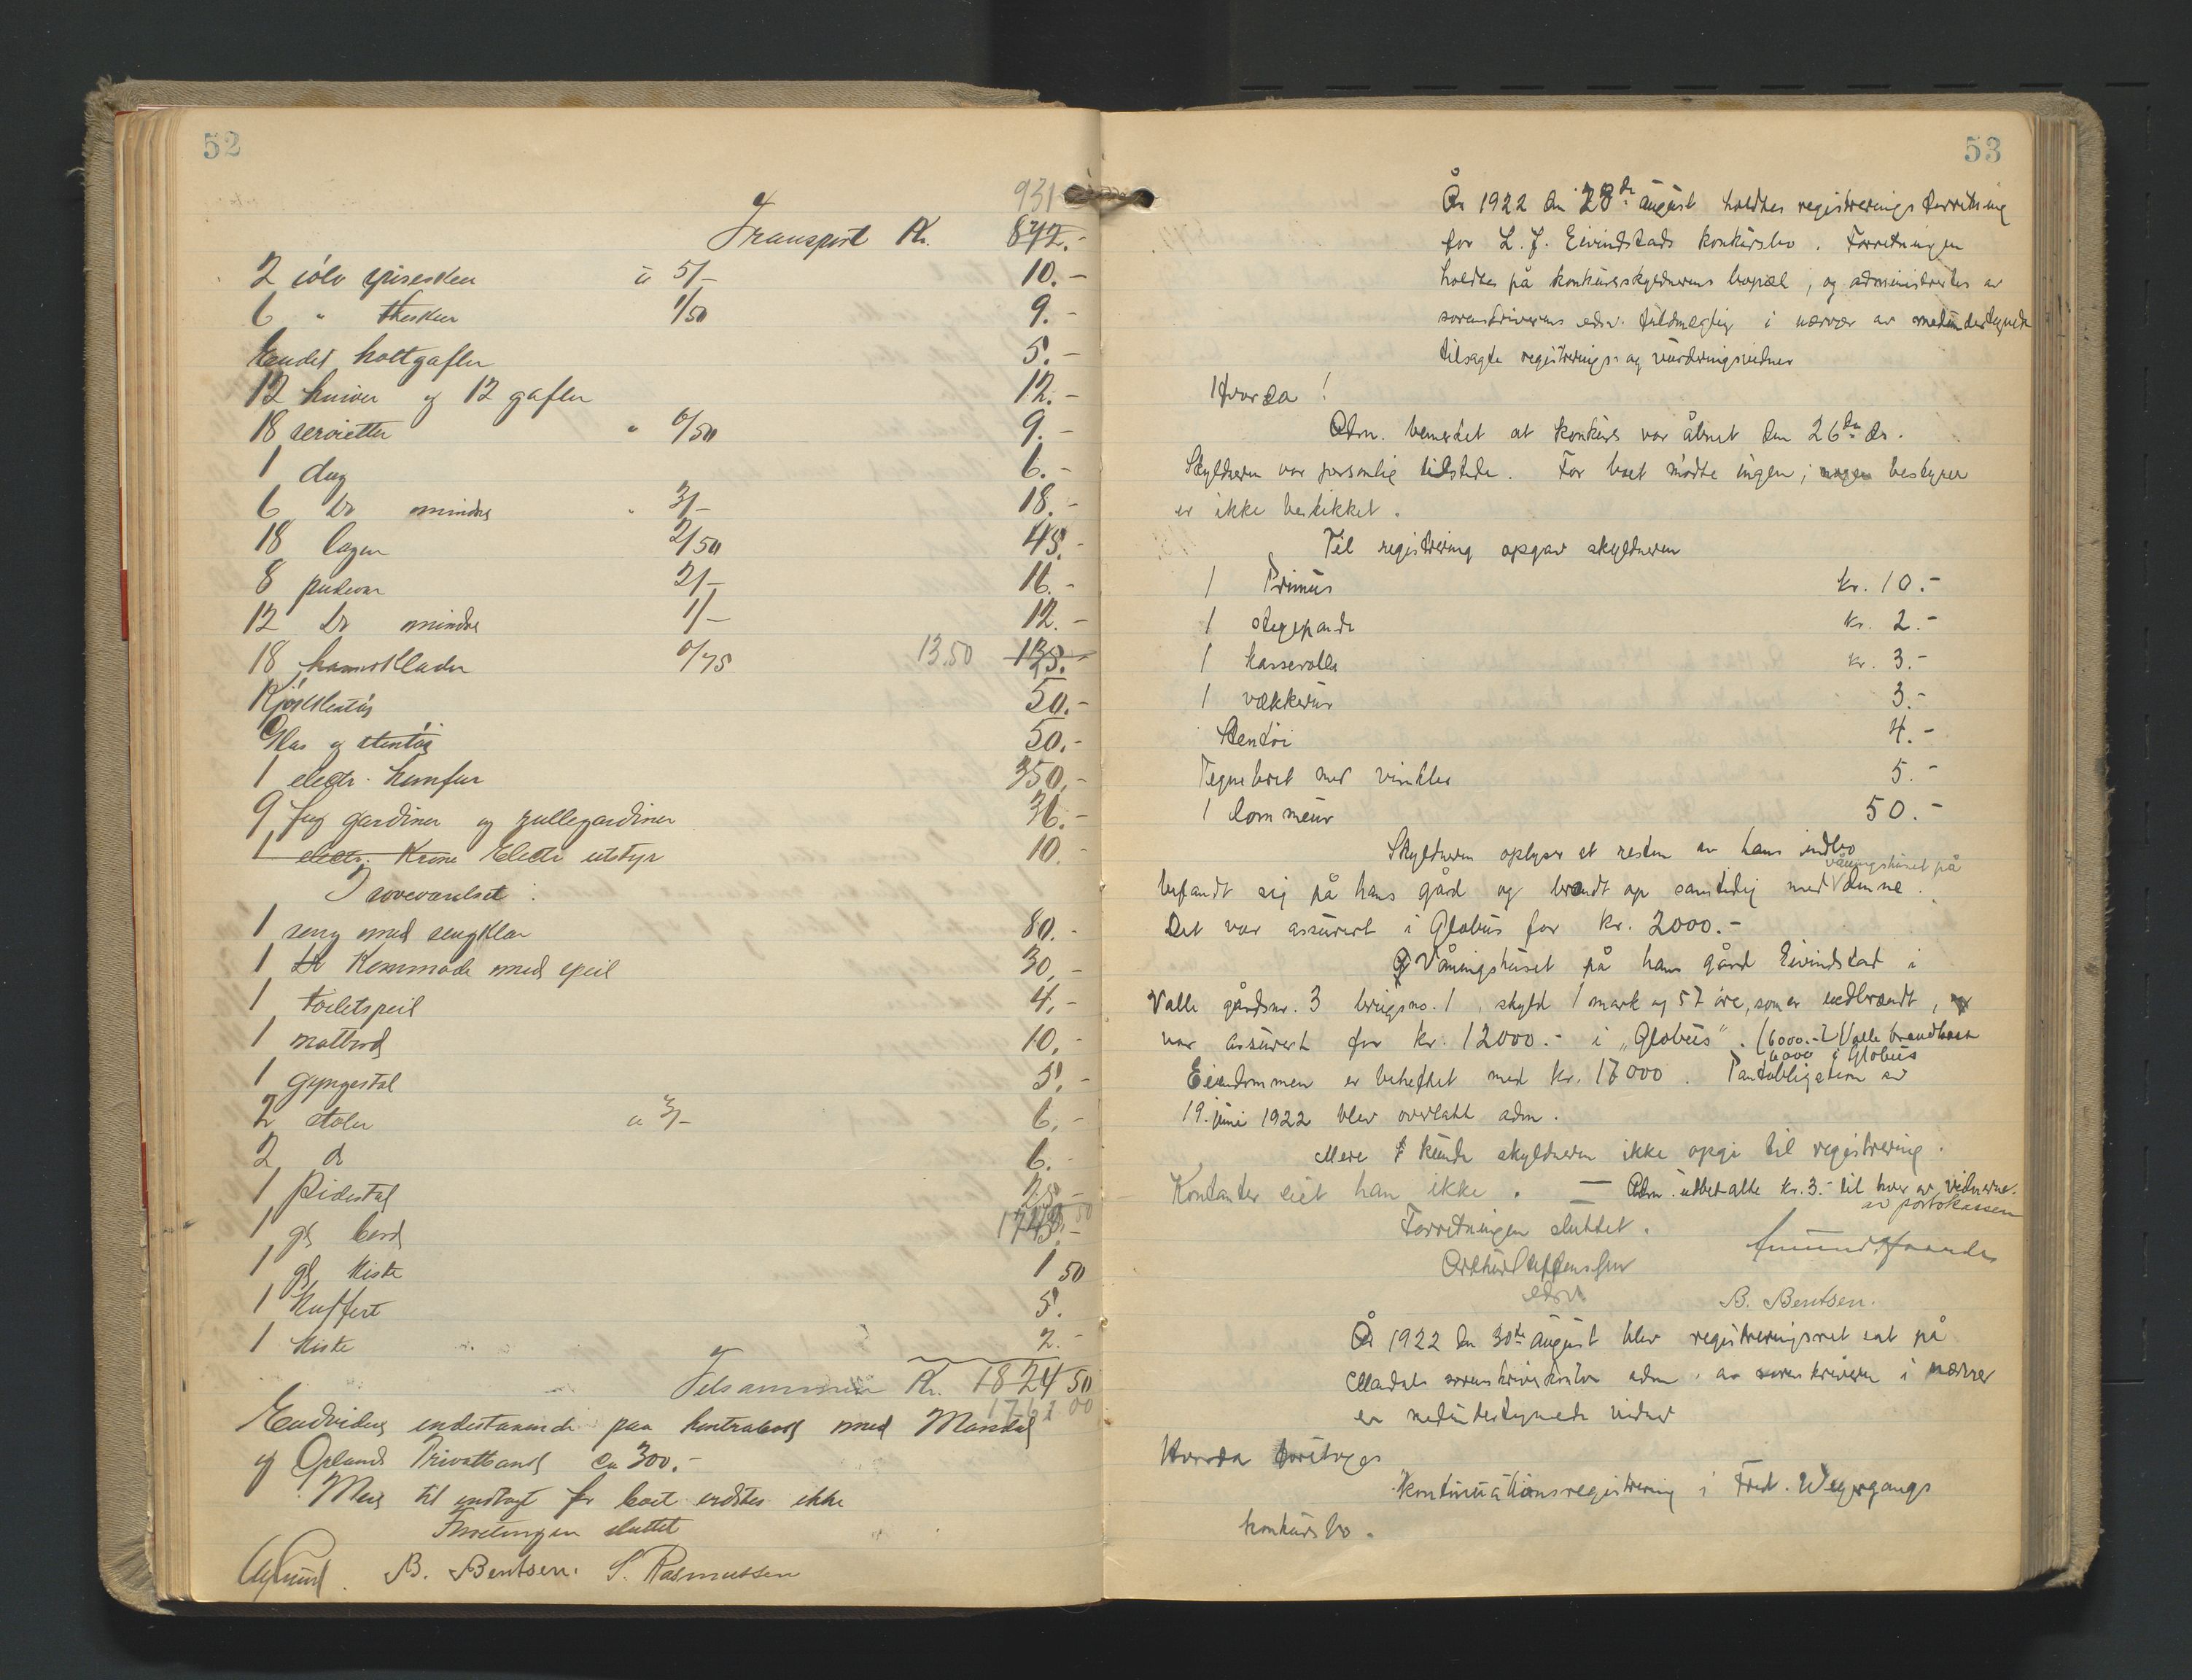 52
931
Transport Kr. 872.-
2 sølv spiseskeer à 5/- 10.-
6 " theskeer 1/50 9.-
Endel kottgafler 5.-
12 kniver og 12 gafler 12.-
18 servietter " 0/50 9.-
1 dug 6.-
6 do mindre " 3/- 18.-
18 lagen 2/50 45.-
8 putevar 2/- 16.-
12 do mindre 1/- 12.-
18 haandklæder 0/75 13.50
Kjøkkentøi 50.-
Glas og stentøi 50.-
1 electr. komfur 350.-
9 fag gardiner og rullegardiner 36.-
1 electr. Krone Electr utstyr 10.-
I soveværelset:
1 seng med sengklær 80.-
1 do Kommode med speil 30.-
1 toiletspeil 4.-
1 natbord 10.-
1 gyngestol 5.-
2 stoler a 3/- 6.-
2 do 6.-
1 Pidestal
1 gl bord
1 gl kiste 1 50
1 Kuffert 5.
1 kiste 2.-
Tilsammen Kr. 1824 50
1762 00
Endvidere indestaaende paa kontrabok med Mandal
og Oplands Privatbank ca 300.-
Mere til indtægt for boet erdtes ikke
Forretningen sluttet
B. Bentsen. S. Rasmussen
53
År 1922 den 28de august holdtes registreringsforretning
for L. J. Eivindstads konkursbo. Forretningen
holdtes på konkursskyldnerens bopæl, og administrertes av
sorenskriverens edsv. fuldmægtig i nærvær av medundertegnede
tilsagte registrerings- og vurderingsvidner
Hvorda!
Adm. bemerket at konkurs var åbnet den 26de ds.
Skyldneren var personlig tilstede. For boet møtte ingen, nogen bestyrer
er ikke beskikket.
Til registrering opgav skyldneren
1 Primus kr. 10.-
1 stegepande kr. 2.-
1 kasserolle kr. 3.-
1 vækkerur 3.-
Stentøi 4.-
Tegnebret med vinkler 5.-
1 lommeur 50.-
Skyldneren oplyser at resten av hans indbo
våningshuset på
befandt sig på hans gård og brændt op samtidig med denne.
Det var assurert i Globus for kr. 2000.-
Våningshuset på hans gård Eivindstad i
Valle gårdsnr. 3 brugsno. 1, skyld 1 mark og 57 øre, som er nedbrændt,
var assurert for kr. 12000.- i "Globus". (6000.- i Valle brandkasse
6000 i Globus
Eiendommen er beheftet med kr. 17000. Pantobligation av
19. juni 1922 blev overlatt adm.
Mere kunde skyldneren ikke opgi til registrering.
Kontanter eiet han ikke. — Adm. utbetalte kr. 3.- til hver av vidnerne.
av portokassen
Forretningen sluttet.
Arthur Steffensen
edsv.
B. Bentsen.
År 1922 den 30te august blev registreringsret sat på
Mandals sorenskriverkontor adm. av sorenskriveren i nærvær
av medundertegnede vidner
Hvorda foretoges
Kontinuationsregistrering i Fred. Weyergangs
konkursbo.